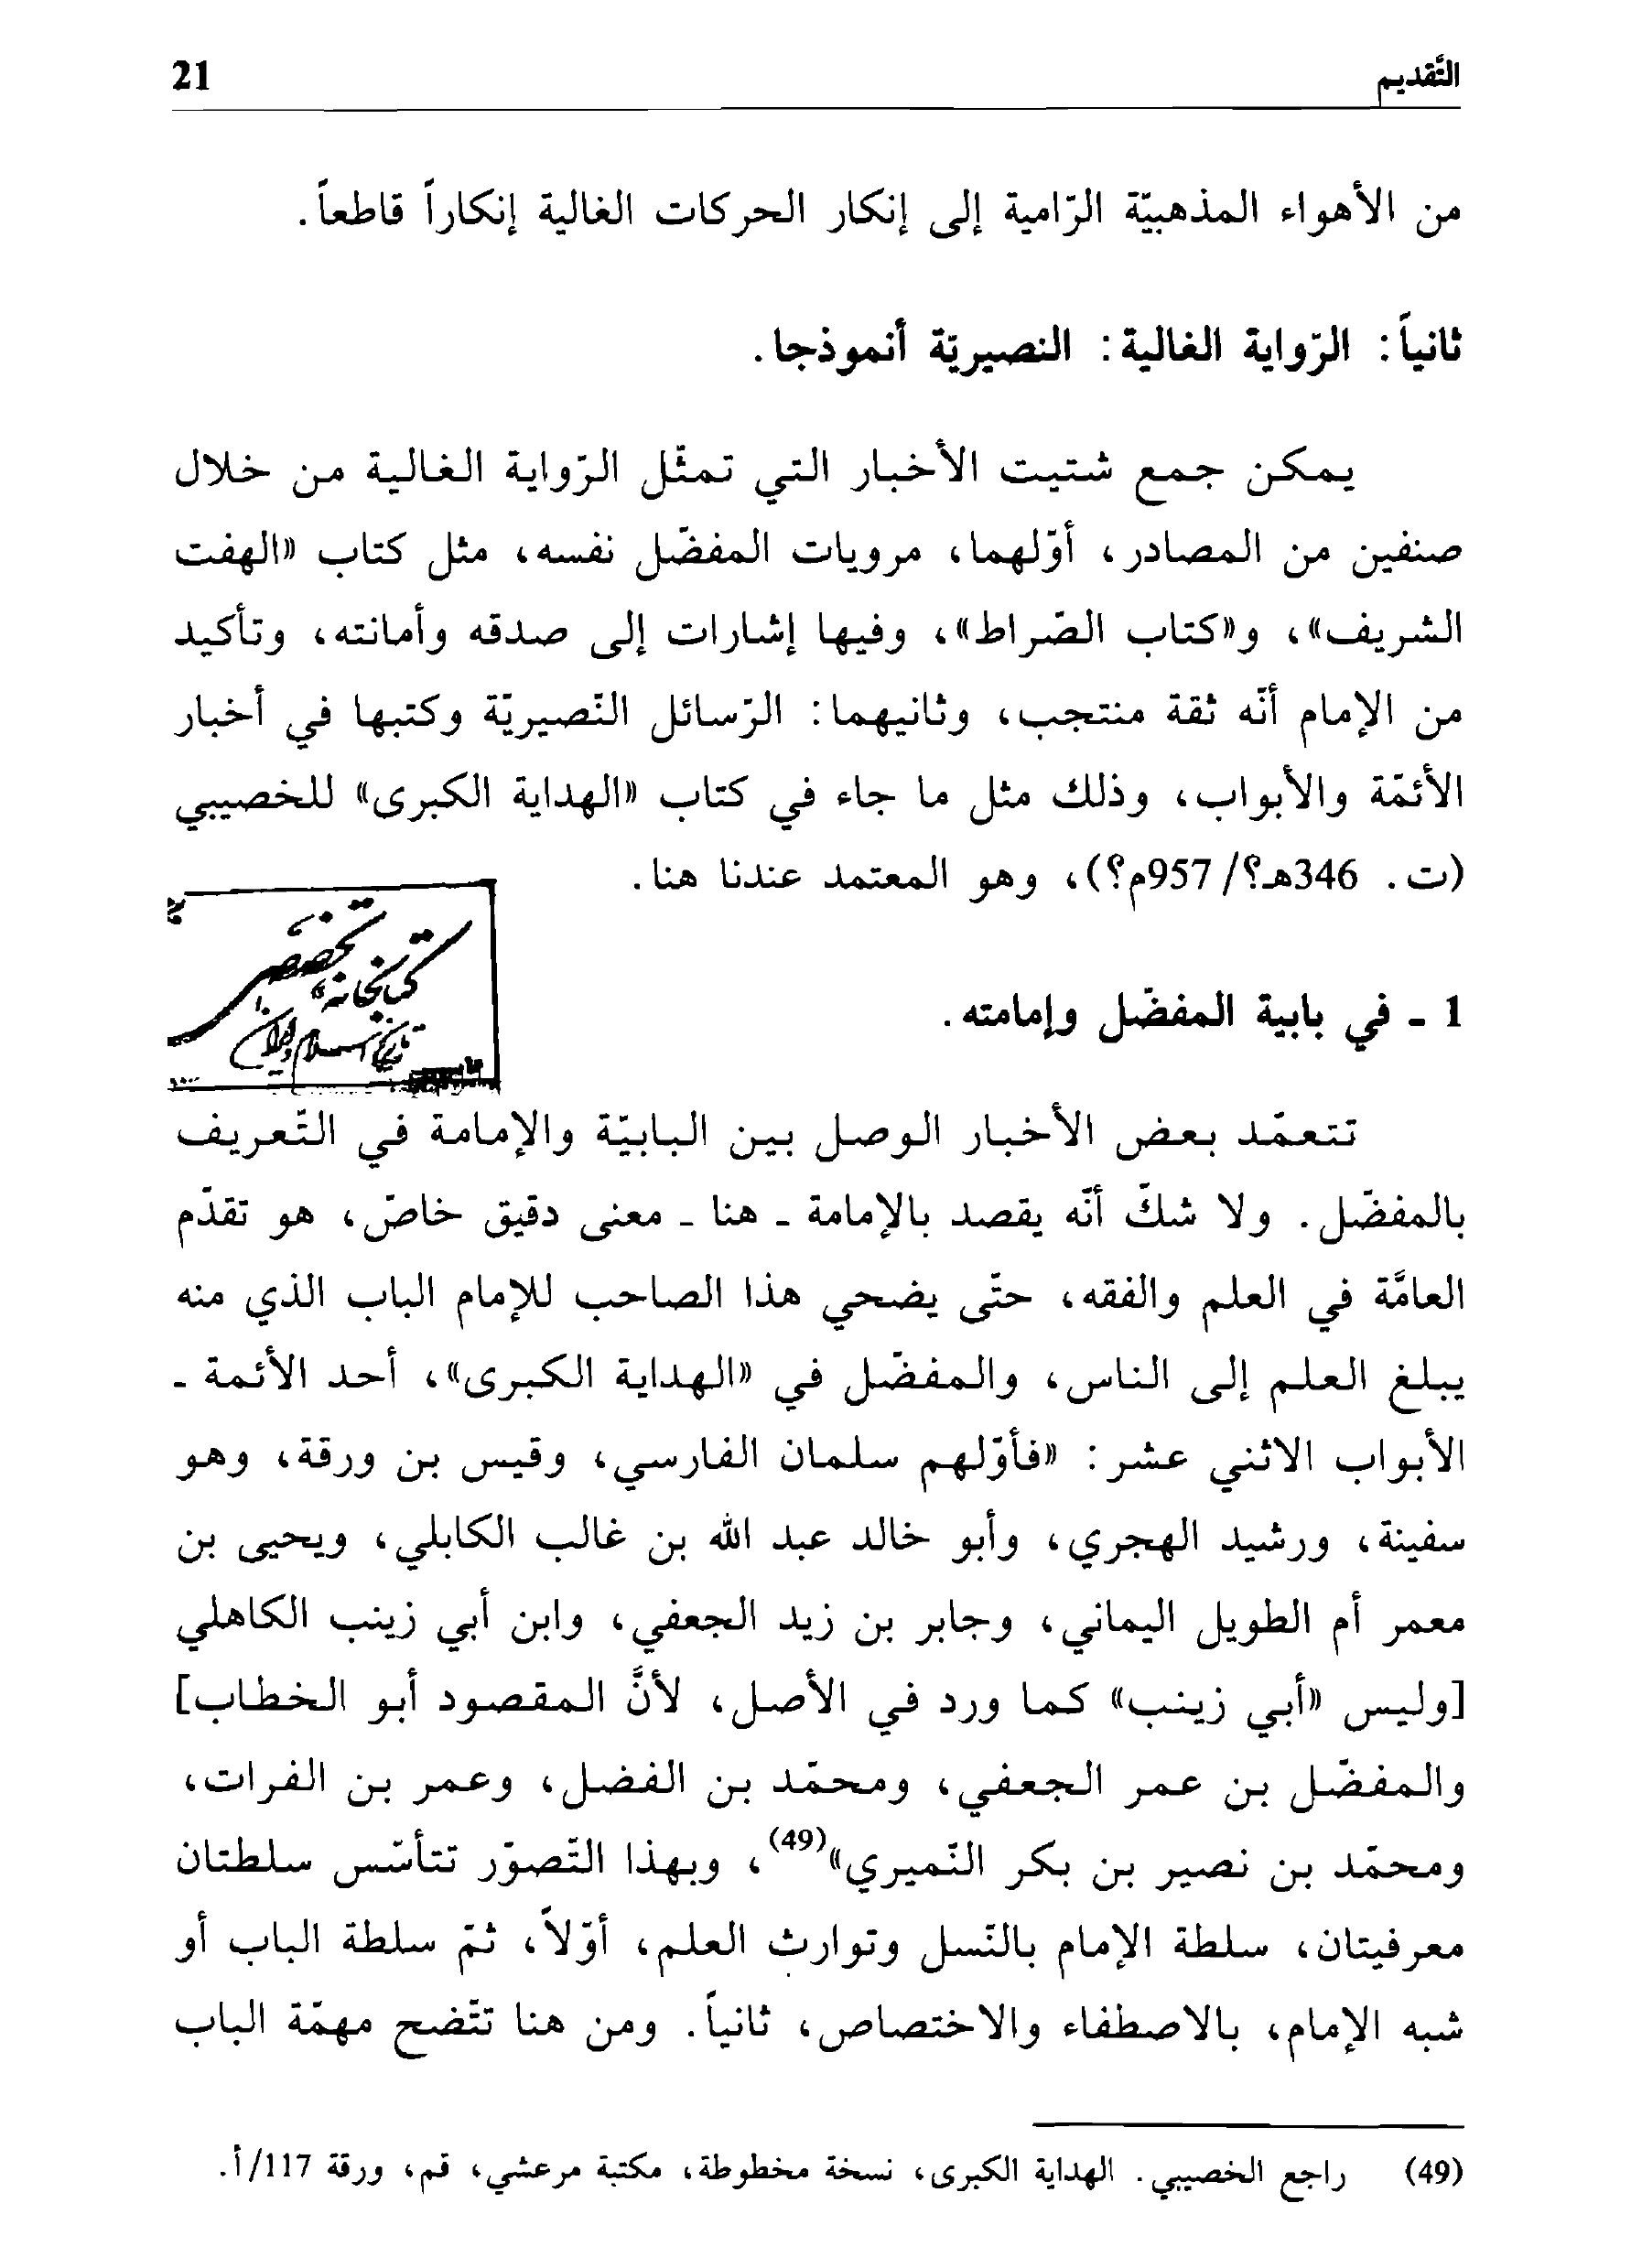 التَّقديم
21
من الأهواء المذهبيّة الرّامية إلى إنكار الحركات الغالية إنكاراً قاطعاً.
ثانياً: الرّواية الغالية: النصيريّة أنموذجا.
يمكن جمع شتيت الأخبار التي تمثّل الرّواية الغالية من خلال
صنفين من المصادر، أوّلهما، مرويات المفضّل نفسه، مثل كتاب «الهفت
الشريف»، و«كتاب الصّراط»، وفيها إشارات إلى صدقه وأمانته، وتأكيد
من الإمام أنّه ثقة منتجب، وثانيهما: الرّسائل النّصيريّة وكتبها في أخبار
الأئمّة والأبواب، وذلك مثل ما جاء في كتاب «الهداية الكبرى» للخصيبي
(ت. 346هـ؟/ 957م؟)، وهو المعتمد عندنا هنا.
كتابخانه تخصصى
تاريخ اسلام و ايران
1 ـ في بابية المفضّل وإمامته.
تتعمّد بعض الأخبار الوصل بين البابيّة والإمامة في التّعريف
بالمفضّل. ولا شكّ أنّه يقصد بالإمامة ـ هنا ـ معنى دقيق خاصّ، هو تقدّم
العامَّة في العلم والفقه، حتّى يضحي هذا الصاحب للإمام الباب الذي منه
يبلغ العلم إلى الناس، والمفضّل في «الهداية الكبرى»، أحد الأئمة ـ
الأبواب الاثني عشر: «فأوّلهم سلمان الفارسي، وقيس بن ورقة، وهو
سفينة، ورشيد الهجري، وأبو خالد عبد الله بن غالب الكابلي، ويحيى بن
معمر أم الطويل اليماني، وجابر بن زيد الجعفي، وابن أبي زينب الكاهلي
[وليس «أبي زينب» كما ورد في الأصل، لأنَّ المقصود أبو الخطاب]
والمفضّل بن عمر الجعفي، ومحمّد بن الفضل، وعمر بن الفرات،
ومحمّد بن نصير بن بكر النّميري»(49)، وبهذا التّصوّر تتأسّس سلطتان
معرفيتان، سلطة الإمام بالنّسل وتوارث العلم، أوّلاً، ثمّ سلطة الباب أو
شبه الإمام، بالاصطفاء والاختصاص، ثانياً. ومن هنا تتّضح مهمّة الباب
(49) راجع الخصيبي. الهداية الكبرى، نسخة مخطوطة، مكتبة مرعشي، قم، ورقة 117/أ.